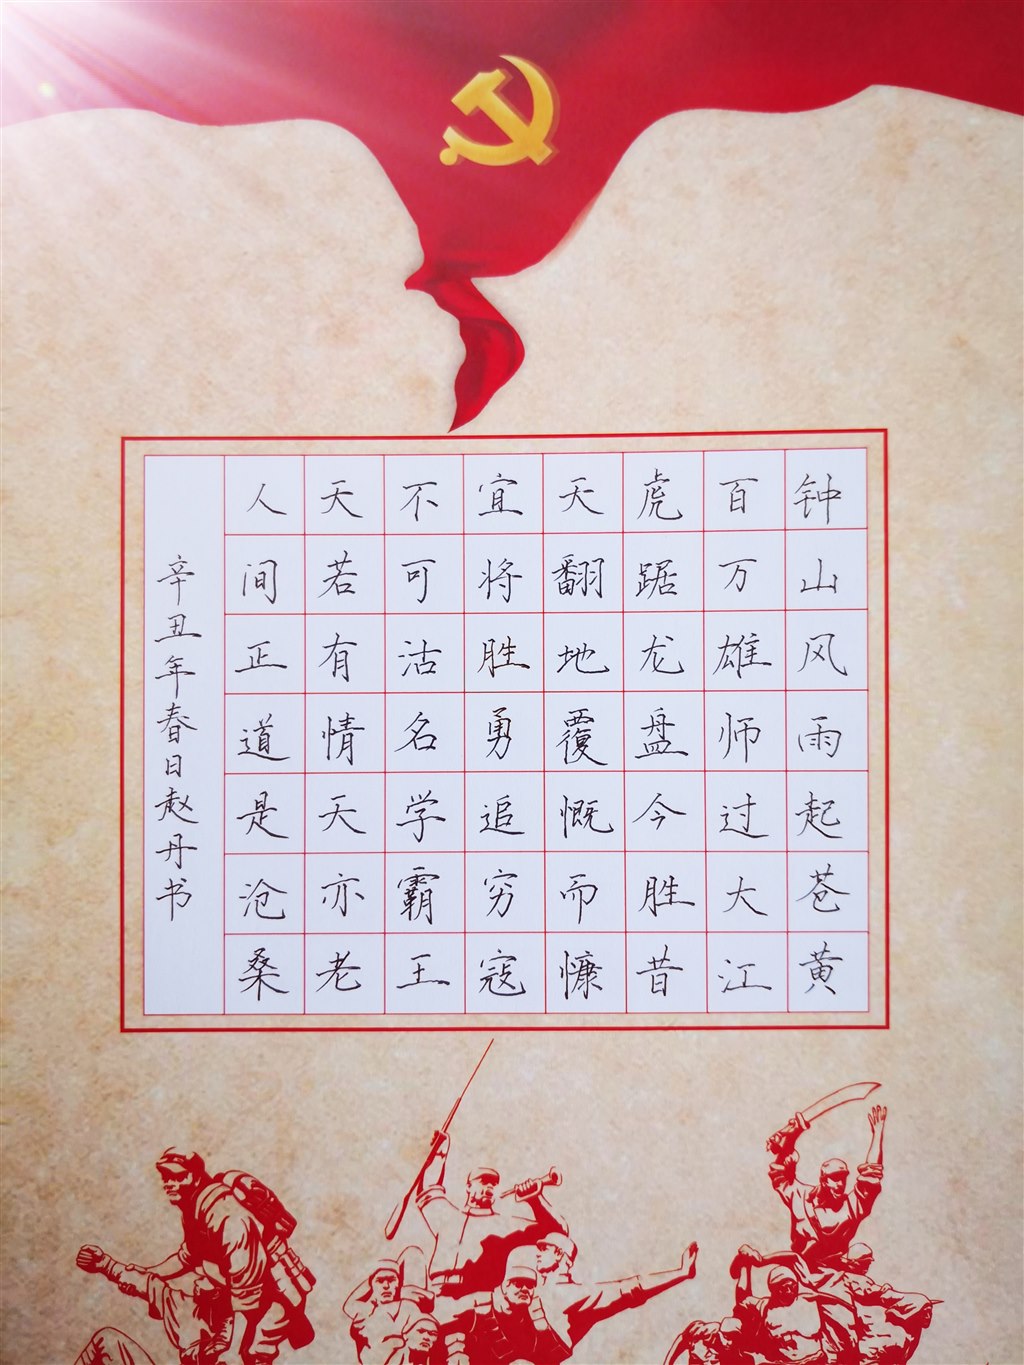 钟山风雨起苍黄
百万雄师过大江
虎踞龙盘今胜昔
天翻地覆慨而慷
宜将胜勇追穷寇
不可沽名学霸王
天若有情天亦老
人间正道是沧桑
辛丑年春日赵丹书